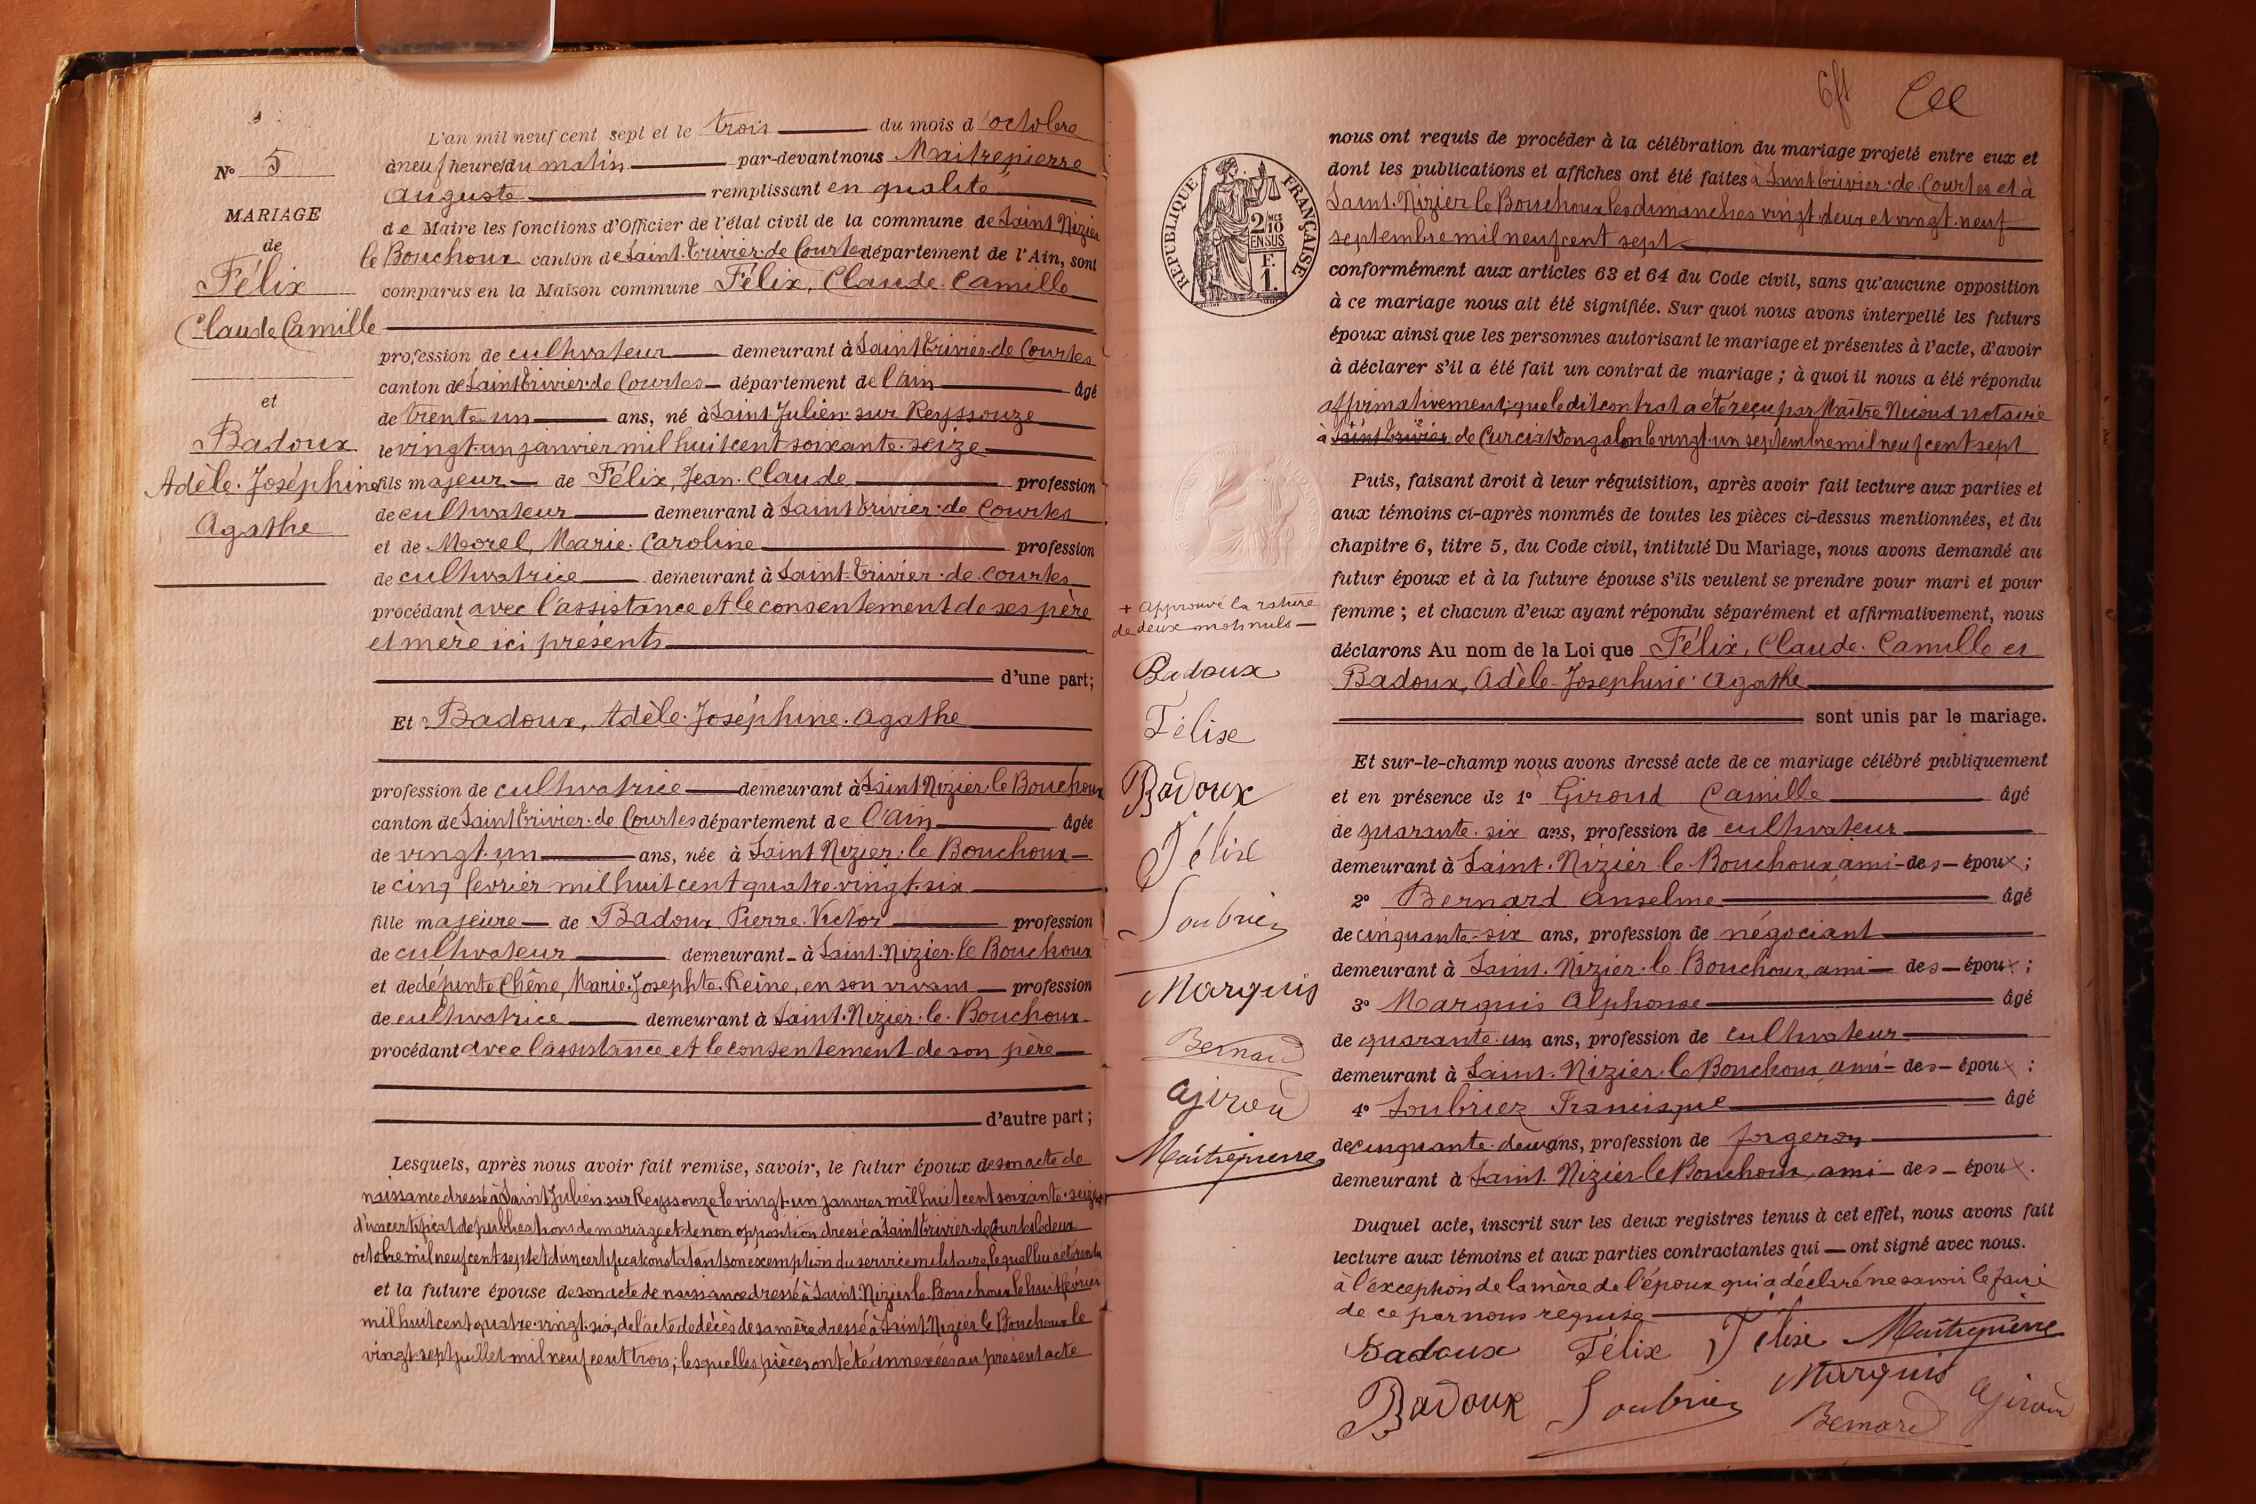 N° 5
MARIAGE
de
Félix
Claude Camille
et
Badoux
Adèle. Joséphine
Agathe
L'an mil neuf cent sept et le trois du mois d'octobre
à neuf heures du matin par-devant nous Maitrepierre
Auguste remplissant en qualité
de Maire les fonctions d'Officier de l'état civil de la commune de Saint Nizier
le Bouchoux canton de Saint-Trivier-de Courtes département de l'Ain, sont
comparus en la Maison commune Félix, Claude. Camille
profession de cultivateur demeurant à Saint Trivier-de Courtes
canton de Saint Trivier-de Courtes département de l'ain âgé
de trente un ans, né à Saint Julien sur Reyssouze
le vingt-un janvier mil huit cent soixante-seize
fils majeur de Félix, Jean. Claude profession
de cultivateur demeurant à Saint Trivier-de Courtes
et de Morel, Marie. Caroline profession
de cultivatrice demeurant à Saint-Trivier-de-Courtes
procédant avec l'assistance et le consentement de ses père
et mère ici présents
d'une part;
Et Badoux, Adèle. Joséphine. Agathe
profession de cultivatrice demeurant à Saint Nizier-le Bouchoux
canton de Saint Trivier-de Courtes département de l'ain âgée
de vingt-un ans, née à Saint Nizier-le Bouchoux
le cinq fevrier mil huit cent quatre-vingt-six
fille majeure de Badoux Pierre Victor profession
de cultivateur demeurant à Saint-Nizier-le Bouchoux
et de défunte Chêne, Marie. Josephte. Reine, en son vivant profession
de cultivatrice demeurant à Saint-Nizier-le-Bouchoux
procédant avec l'assistance et le consentement de son père
d'autre part;
Lesquels, après nous avoir fait remise, savoir, le futur époux de son acte de
naissance dressé à Saint Julien sur Reyssouze le vingt-un janvier mil huit cent soixante-seize
d'un certificat de publications de mariage et de non opposition dressé à Saint Trivier-de Courtes le deux
octobre mil neuf cent sept et d'un certificat constatant son exemption du service militaire, lequel lui a été rendu
et la future épouse de son acte de naissance dressé à Saint-Nizier le Bouchoux le huit février
mil huit cent quatre-vingt-six, de l'acte de décès de sa mère dressé à Saint Nizier le Bouchoux le
vingt-sept juillet mil neuf cent trois; lesquelles pièces ont été annexées au présent acte
RÉPUBLIQUE FRANÇAISE
2 10
EN SUS
F.
1.
+ Approuvé la rature
de deux mots nuls
Badoux
Félix
Badoux
Félix
Soubriez
Marquis
Bernard
Maitrepierre
nous ont requis de procéder à la célébration du mariage projeté entre eux et
dont les publications et affiches ont été faites à Saint Trivier-de Courtes et à
Saint-Nizier le Bouchoux les dimanches vingt-deux et vingt-neuf
septembre mil neuf cent sept
conformément aux articles 63 et 64 du Code civil, sans qu'aucune opposition
à ce mariage nous ait été signifiée. Sur quoi nous avons interpellé les futurs
époux ainsi que les personnes autorisant le mariage et présentes à l'acte, d'avoir
à déclarer s'il a été fait un contrat de mariage; à quoi il nous a été répondu
affirmativement; que le dit contrat a été reçu par Maître notaire
à Saint Trivier de Curciat Dongalon le vingt-un septembre mil neuf cent sept
Puis, faisant droit à leur réquisition, après avoir fait lecture aux parties et
aux témoins ci-après nommés de toutes les pièces ci-dessus mentionnées, et du
chapitre 6, titre 5, du Code civil, intitulé Du Mariage, nous avons demandé au
futur époux et à la future épouse s'ils veulent se prendre pour mari et pour
femme; et chacun d'eux ayant répondu séparément et affirmativement, nous
déclarons Au nom de la Loi que Félix, Claude. Camille et
Badoux, Adèle-Josephine-Agathe
sont unis par le mariage.
Et sur-le-champ nous avons dressé acte de ce mariage célébré publiquement
et en présence de 1° Giroud Camille âgé
de quarante-six ans, profession de cultivateur
demeurant à Saint-Nizier le Bouchoux, ami des époux;
2° Bernard Anselme âgé
de cinquante-six ans, profession de négociant
demeurant à Saint-Nizier-le Bouchoux, ami des époux;
3° Marquis Alphonse âgé
de quarante-un ans, profession de cultivateur
demeurant à Saint-Nizier-le Bouchoux ami des époux;
4° Soubriez Francisque âgé
de cinquante-deux ans, profession de forgeron
demeurant à Saint Nizier le Bouchoux, ami des époux.
Duquel acte, inscrit sur les deux registres tenus à cet effet, nous avons fait
lecture aux témoins et aux parties contractantes qui ont signé avec nous.
à l'exception de la mère de l'époux qui a déclaré ne savoir le faire
de ce par nous requise
Badoux Félix Félix Maitrepierre
Badoux Soubriez Marquis
Bernard